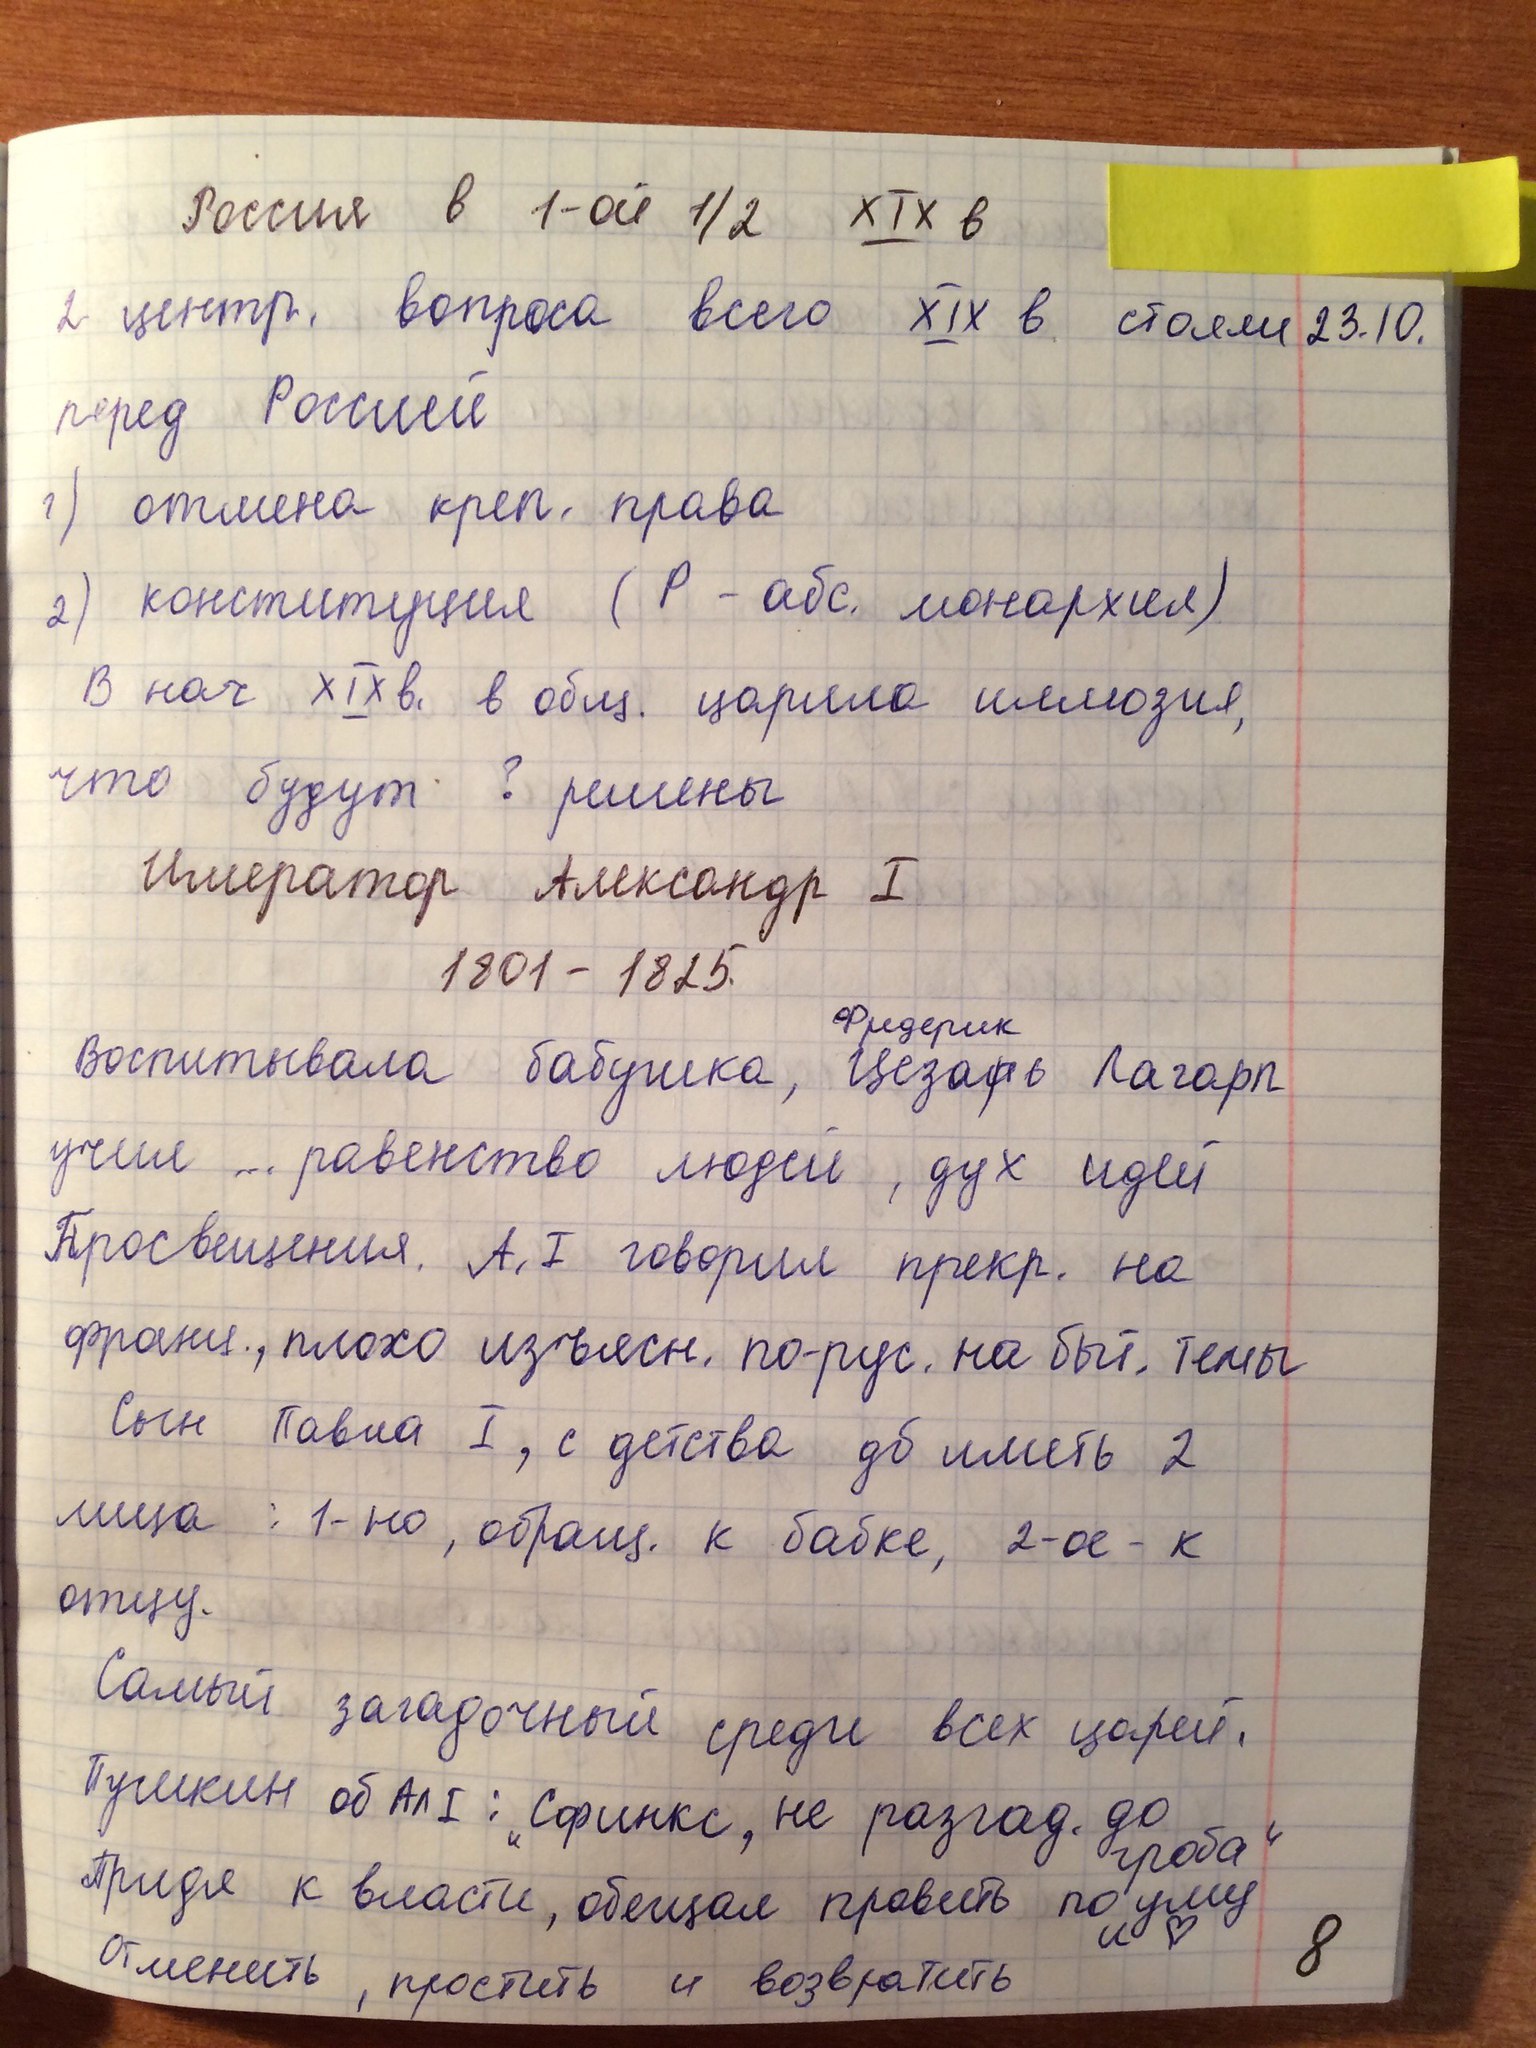 Россия в 1-ой 1/2 XIX в
2 центр. вопроса всего XIX в стояли 23.10.
перед Россией
1) отмена креп. права
2) конституция (Р - абс. монархия)
В нач XIX в. в общ. царила иллюзия,
что будут ? решены
Император Александр I
1801 - 1825.
Фридерик
Воспитывала бабушка, Цезарь Лагарп
учил ... равенство людей, дух идей
Просвещения. А. I говорил прекр. на
франц., плохо изъясн. по-рус. на быт. темы
Сын Павла I, с детства дб иметь 2
лица : 1-но, обращ. к бабке, 2-ое - к
отцу.
Самый загадочный среди всех царей.
Пушкин об Ал I : „Сфинкс, не разгад. до
гроба“
Придя к власти, обещал править по уму
и ♡
Отменить, простить и возвратить
8